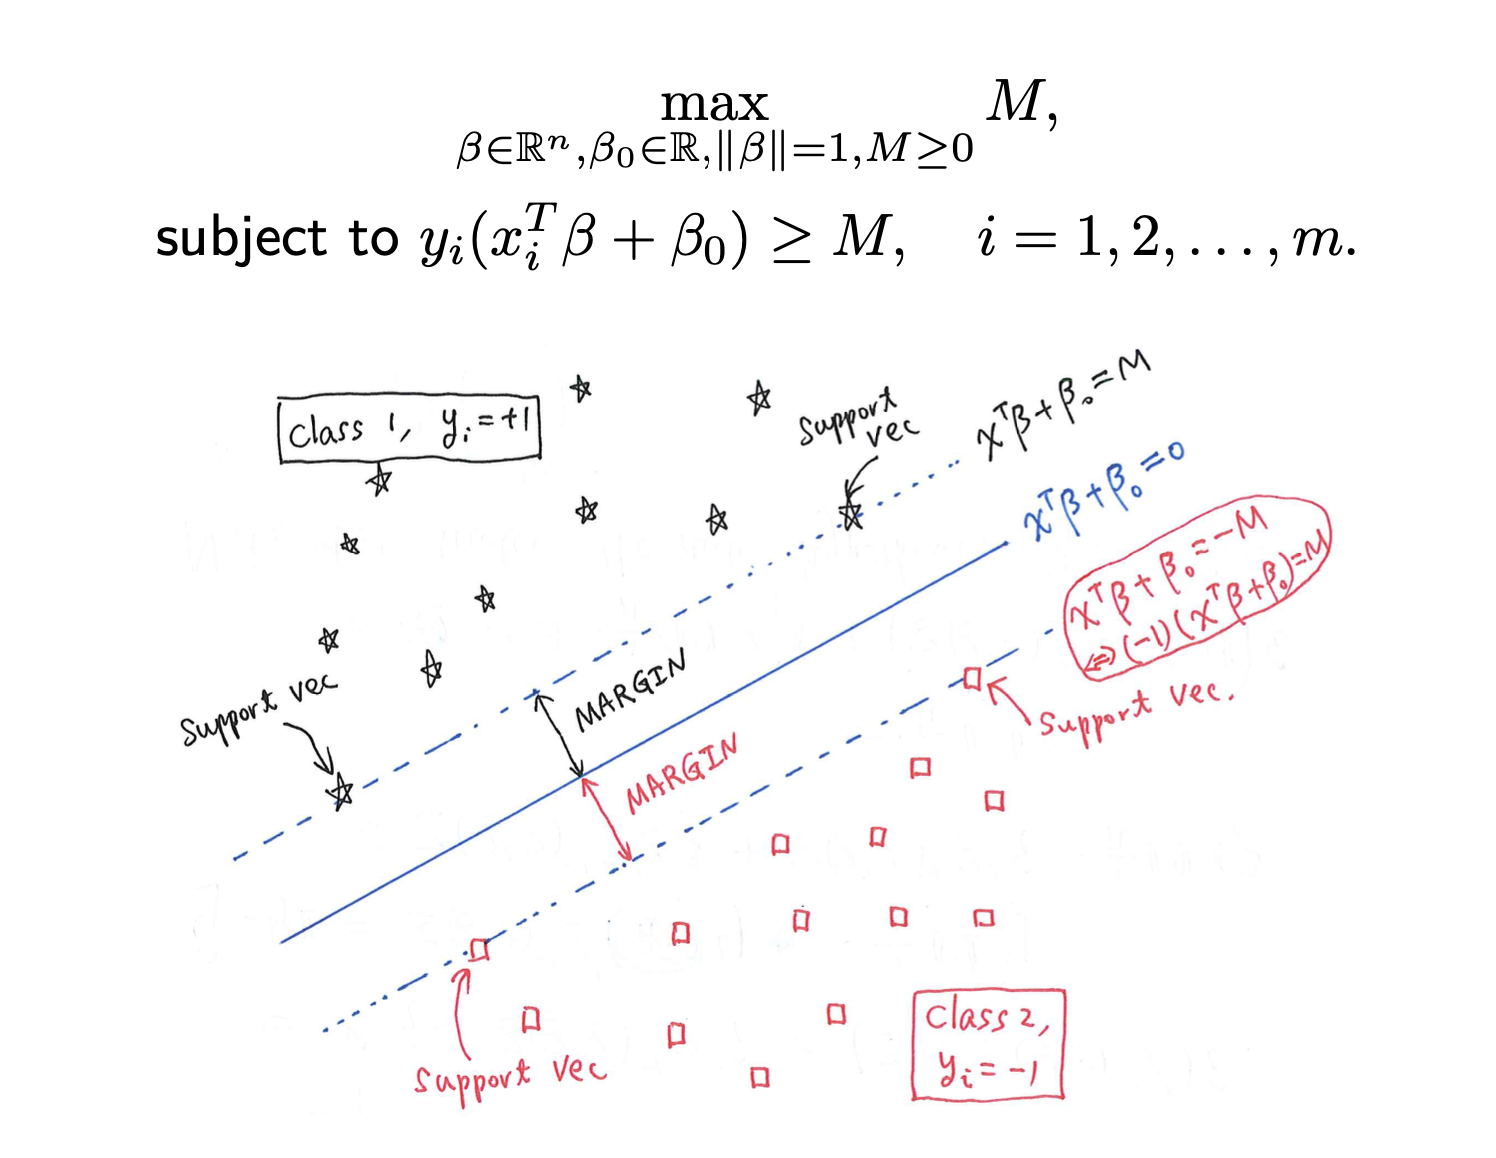 max M,
β∈ℝⁿ,β₀∈ℝ,‖β‖=1,M≥0
subject to yᵢ(xᵢᵀβ + β₀) ≥ M, i = 1, 2, . . . , m.
class 1, yᵢ=+1
support
vec
xᵀβ+β₀=M
xᵀβ+β₀=0
xᵀβ+β₀=-M
⇔(-1)(xᵀβ+β₀)=M
support vec
MARGIN
MARGIN
support vec.
support vec
class 2,
yᵢ=-1